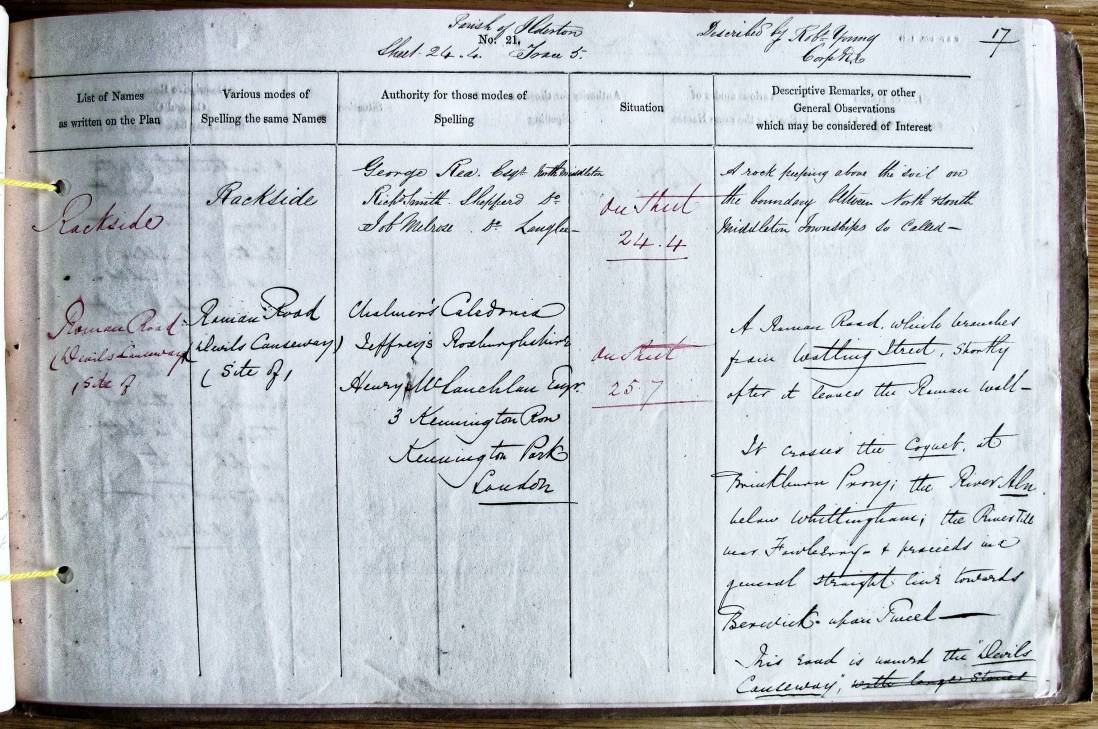 Parish of Ilderton
No. 21,
Sheet 24.4. Trace 5.
Described by Robt. Young
Corpl R.E.
17
List of Names
as written on the Plan
Various modes of
Spelling the same Names
Authority for those modes of
Spelling
Situation
Descriptive Remarks, or other
General Observations
which may be considered of Interest
Rackside
Rackside
George Rea. Esqr. North Middleton
Richd. Smith. Shepperd Do.
Job Melrose. Do. Langlee
On Sheet
24.4
A rock peeping above the soil on
the boundary between North & South
Middleton Townships so called—
Roman Road
(Devils Causeway)
(Site of)
Roman Road
(Devils Causeway)
(Site of)
Chalmer's Caledonia
Jeffrey's Roxburghshire
Henry McLauchlan Esqr.
3 Kennington Row
Kennington Park
London
On Sheet
25.7
A Roman Road, which branches
from Watling Street, Shortly
after it leaves the Roman Wall—
It crosses the Coquet, at
Brinkburn Priory; the River Aln
below Whittingham; the River Till
near Fowberry— & proceeds in a
general straight line towards
Berwick-upon Tweed—
This road is named the "Devils
Causeway", with large Stones